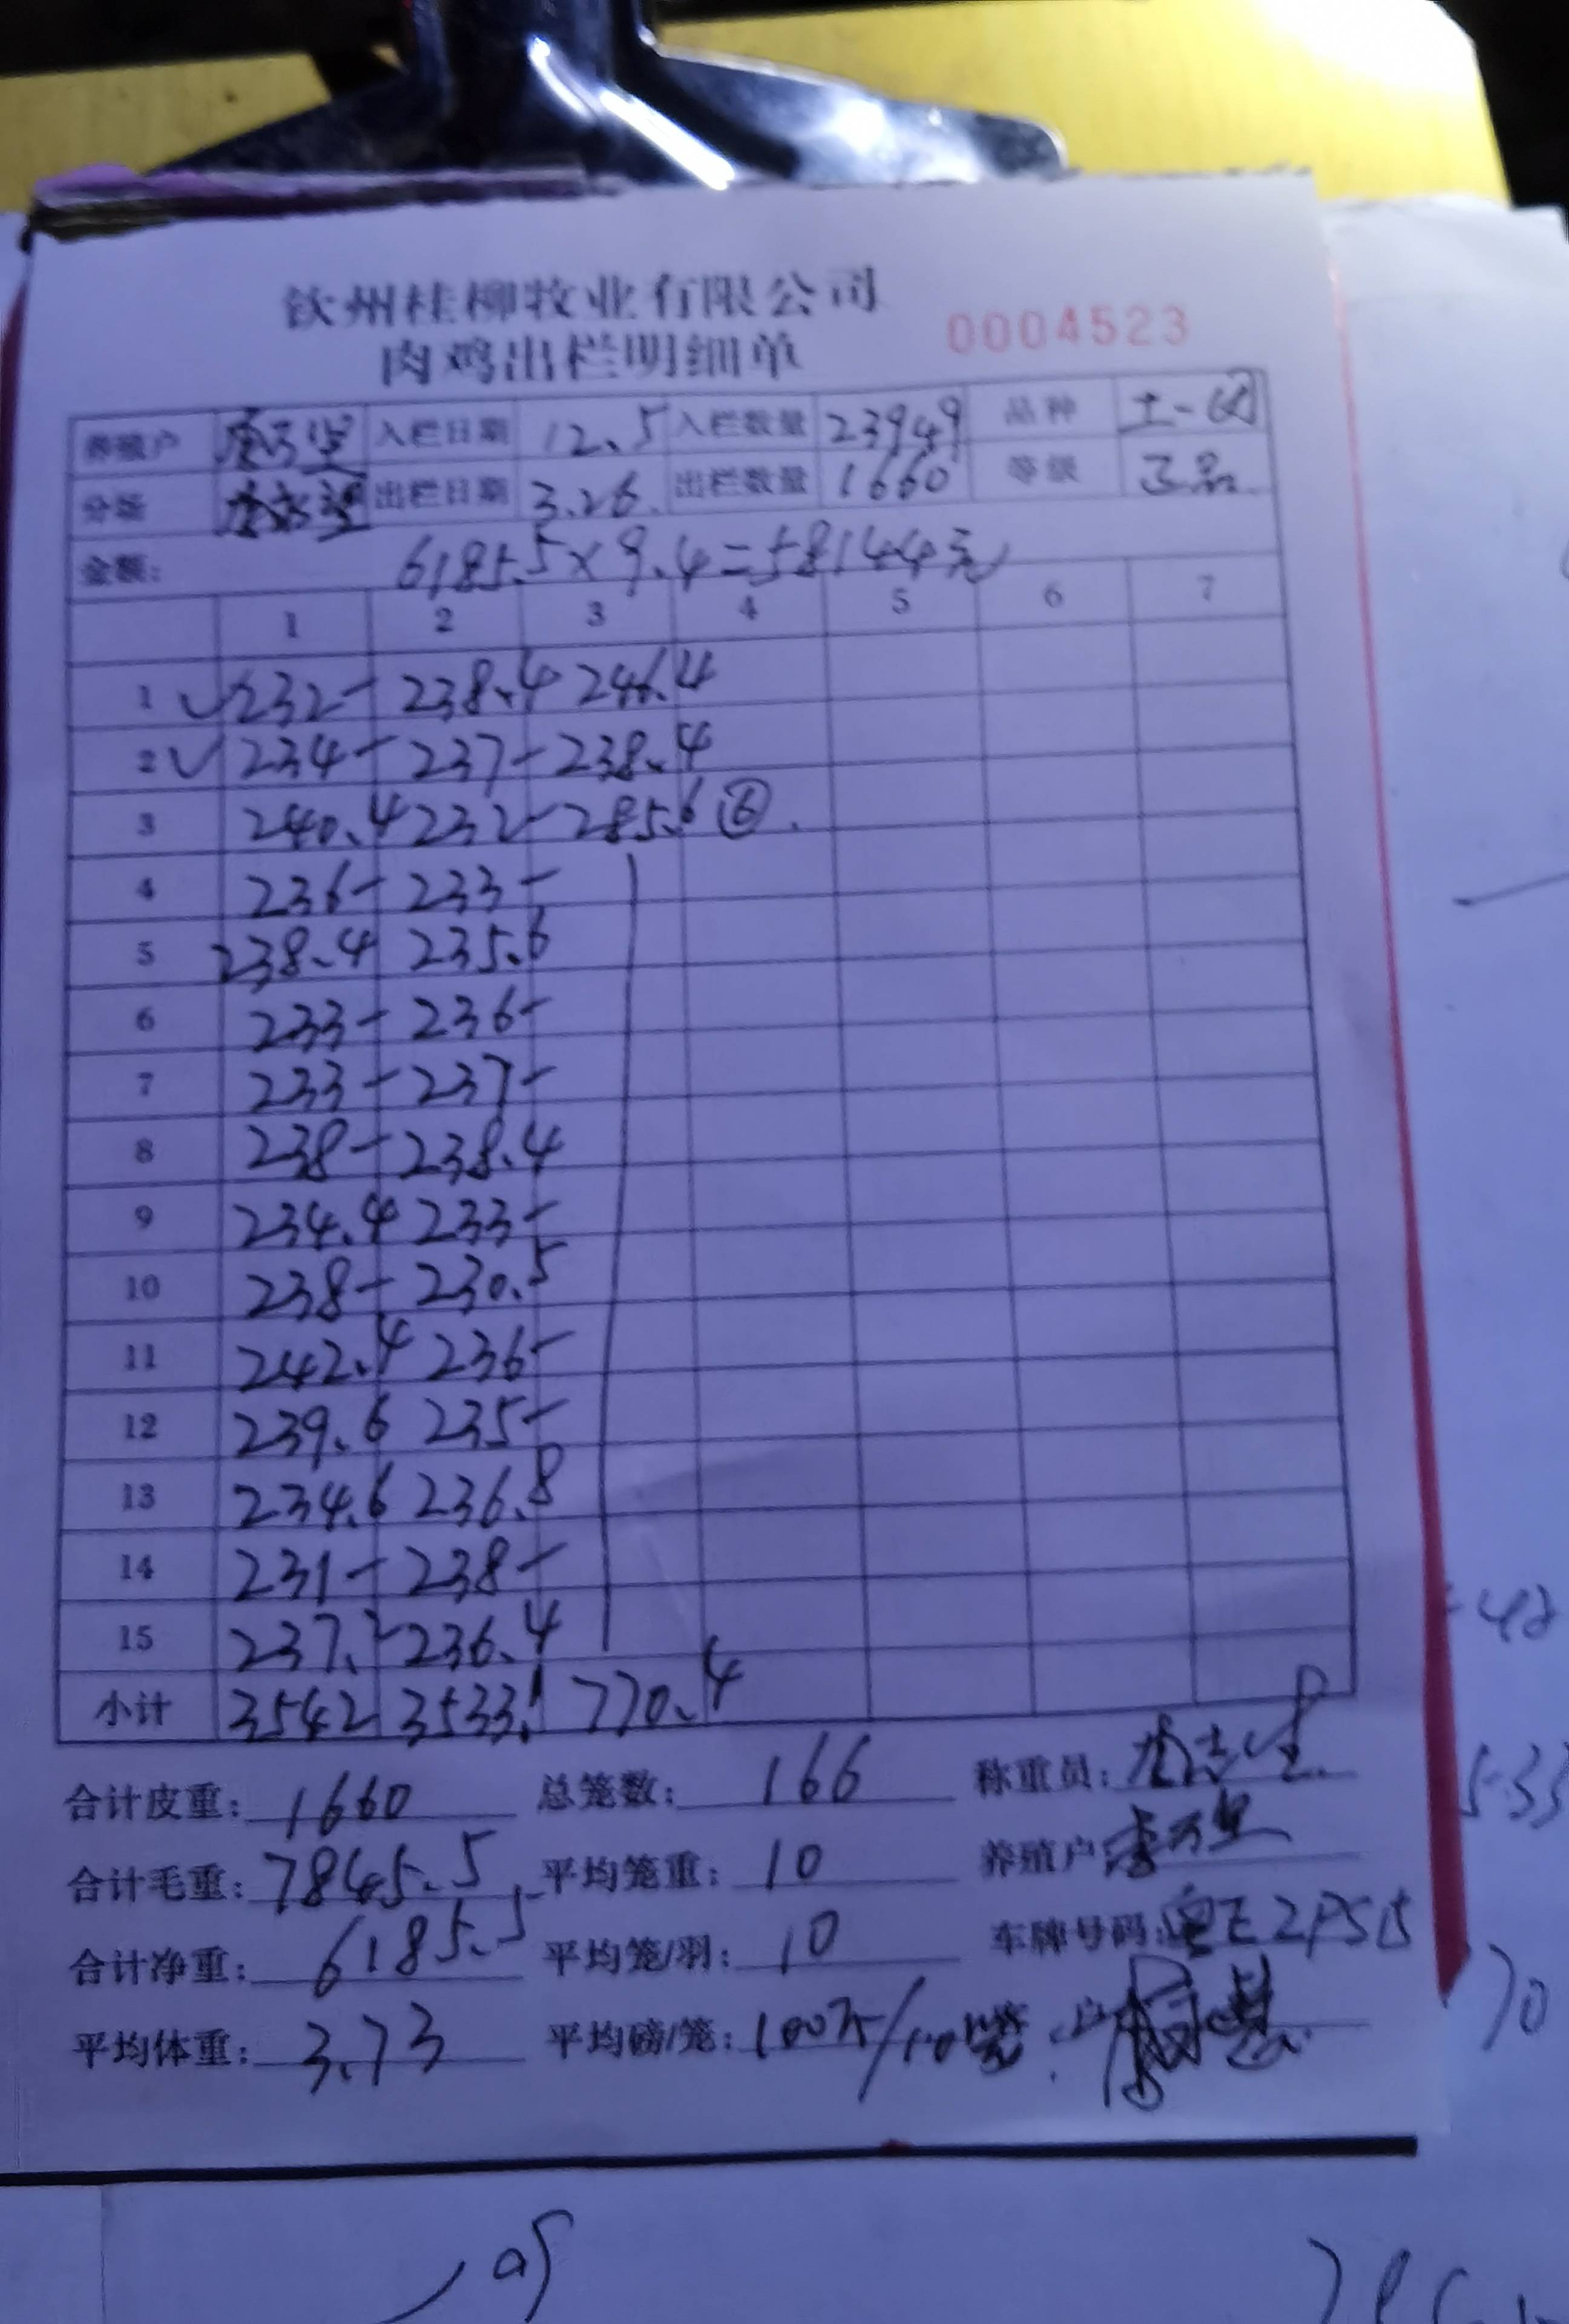 钦州桂柳牧业有限公司
肉鸡出栏明细单 0004523
养殖户 入栏日期 12.5 入栏数量 23949 品种 土一
分场 出栏日期 3.26. 出栏数量 1660 等级 正品
金额: 6185.5×9.4=58144元
1 2 3 4 5 6 7
1 ✓ 232- 238.4 246.4
2 ✓ 234- 237- 238.4
3 240.4 232- 285.6 ⑥.
4 236- 233-
5 238.4 235.6
6 233- 236-
7 233- 237-
8 238- 238.4
9 234.4 233-
10 238- 230.5
11 242.4 236-
12 239.6 235-
13 234.6 236.8
14 231- 238-
15 237.2 236.4
小计 3542 3533.1 770.4
合计皮重: 1660 总笼数: 166 称重员:
合计毛重: 7845.5 平均笼重: 10 养殖户
合计净重: 6185.5 平均笼/羽: 10 车牌号码:
平均体重: 3.73 平均磅/笼: